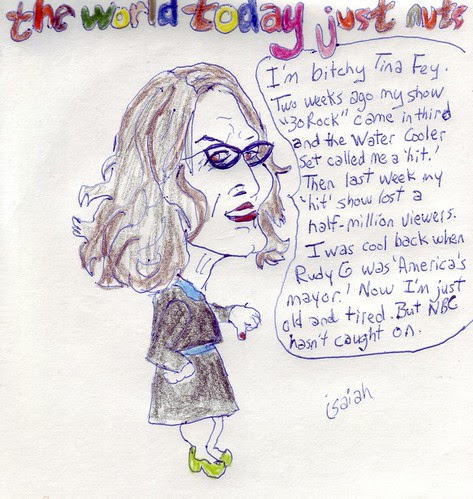 the world today just nuts
I'm bitchy Tina Fey.
Two weeks ago my show
"30 Rock" came in third
and the Water Cooler
Set called me a 'hit.'
Then last week my
'hit' show lost a
half-million viewers.
I was cool back when
Rudy G was 'America's
mayor.' Now I'm just
old and tired. But NBC
hasn't caught on.
isaiah